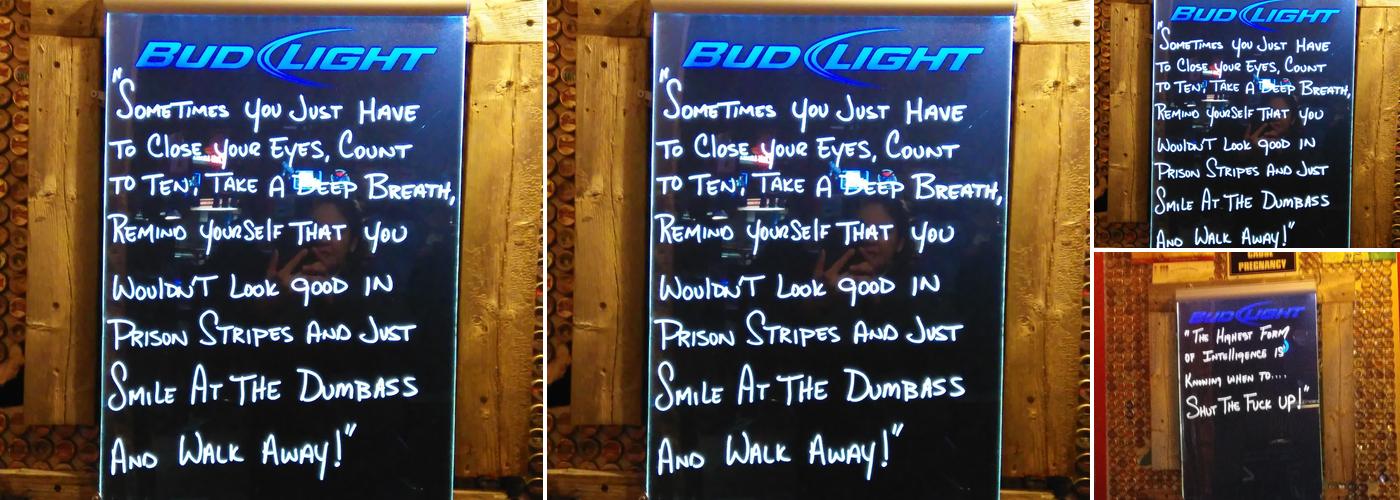 BUD LIGHT
"SOMETIMES YOU JUST HAVE
TO CLOSE YOUR EYES, COUNT
TO TEN, TAKE A DEEP BREATH,
REMIND YOURSELF THAT YOU
WOULDN'T LOOK GOOD IN
PRISON STRIPES AND JUST
SMILE AT THE DUMBASS
AND WALK AWAY!"
BUD LIGHT
"SOMETIMES YOU JUST HAVE
TO CLOSE YOUR EYES, COUNT
TO TEN, TAKE A DEEP BREATH,
REMIND YOURSELF THAT YOU
WOULDN'T LOOK GOOD IN
PRISON STRIPES AND JUST
SMILE AT THE DUMBASS
AND WALK AWAY!"
BUD LIGHT
"SOMETIMES YOU JUST HAVE
TO CLOSE YOUR EYES, COUNT
TO TEN, TAKE A DEEP BREATH,
REMIND YOURSELF THAT YOU
WOULDN'T LOOK GOOD IN
PRISON STRIPES AND JUST
SMILE AT THE DUMBASS
AND WALK AWAY!"
CAUSE
PREGNANCY
BUD LIGHT
"THE HIGHEST FORM
OF INTELLIGENCE IS
KNOWING WHEN TO....
SHUT THE FUCK UP!"